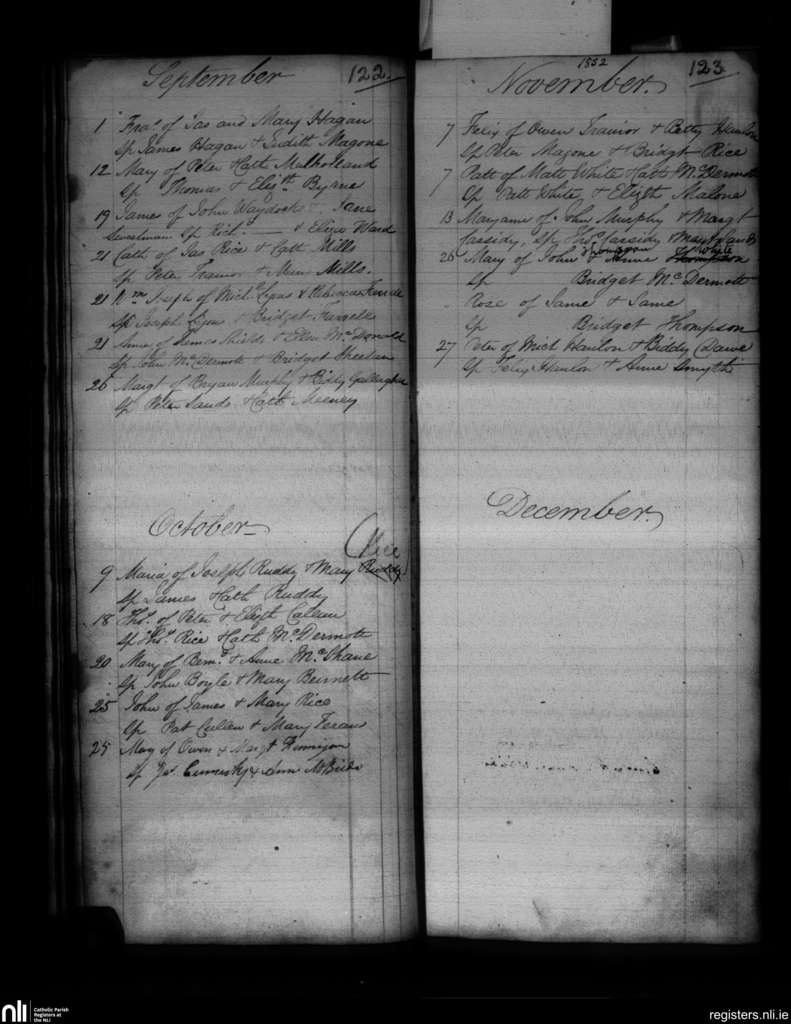 September 122
1 Fras of Jas and Mary Hagan
Sp James Hagan & Judith Magone
12 Mary of Peter & Cath Mulholland
Sp Thomas & Elizth Byrne
19 James of John & Jane
Sweetman Sp Richd & Eliza Ward
21 Cath of Jas Rice & Cath Mills
Sp Peter Trainor & Mills.
21 Wm Joseph of Michl Lyons & Rebecca
Sp Joseph Lyon & Bridget
21 Anne of James Shields & Ellen McDonald
Sp John McDermott & Bridget Sheehan
26 Margt of Bryan Murphy & Biddy Gallagher
Sp Peter Sands & Cath Meeney
October
(Rice)
9 Maria of Joseph Ruddy & Mary Ruddy
Sp James & Cath Ruddy
18 Thos of Peter & Elizth Callan
Sp Thos Rice & Cath McDermott
20 Mary of Bernd & Anne McShane
Sp John Boyle & Mary Bennett
25 John of James & Mary Rice
Sp Pat Cullen & Mary
25 Mary of Owen & Margt Finnigan
Sp Jas & Ann McBride
1852
November. 123
7 Felix of Owen Trainor & Betty Hanlon
Sp Peter Magone & Bridgt Rice
7 Patt of Matt White & Cath McDermott
Sp Patt White & Elizth Malone
13 Maryanne of John Murphy & Margt
Cassidy, Sp Thos Cassidy & Margt
26 Mary of John & Anne Thompson
Sp Bridget McDermott
Rose of Same & Same
Sp Bridget Thompson
27 Peter of Mich Hanlon & Biddy
Sp Felix Hanlon & Anne Smyth
December.
nli
Catholic Parish
Registers at
the NLI
registers.nli.ie